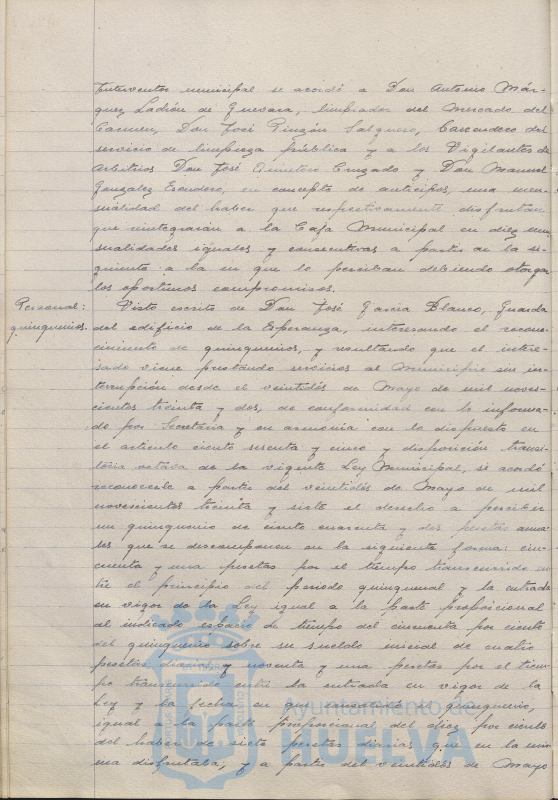 Interventor municipal se acordó a Don Antonio Már-
quez Ladrón de Guevara, limpiador del Mercado del
Carmen, Don José Pinzón Salguero, Carrendero del
servicio de limpieza pública y a los Vigilantes de
Arbitrios Don José Quintero Cruzado y Don Manuel
Gonzalez Escudero, en concepto de anticipos, una men-
sualidad del haber que respectivamente disfrutan
que reintegrarán a la Caja Municipal en diez men-
sualidades iguales y consecutivas a partir de la si-
guiente a la en que lo perciban debiendo otorgar
los oportunos compromisos.
Personal:
quinquenios.
Visto escrito de Don José Garcia Blanco, Guarda
del edificio de la Esperanza, interesando el recono-
cimiento de quinquenios, y resultando que el intere-
sado viene prestando servicios al Municipio sin in-
terrupción desde el veintidós de Mayo de mil nove-
cientos treinta y dos, de conformidad con lo informa-
do por Secretaria y en armonia con lo dispuesto en
el articulo ciento sesenta y cinco y disposición transi-
toria octava de la vigente Ley Municipal, se acordó
reconocerle a partir del veintidós de Mayo de mil
novecientos treinta y siete el derecho a percibir
un quinquenio de ciento cuarenta y dos pesetas anua-
les que se descomponen en la siguiente forma: cin-
cuenta y una pesetas por el tiempo transcurrido en-
tre el principio del periodo quinquenal y la entrada
en vigor de la Ley igual a la parte proporcional
al indicado espacio de tiempo del cincuenta por ciento
del quinquenio sobre su sueldo inicial de cuatro
pesetas diarias y noventa y una pesetas por el tiem-
po transcurrido entre la entrada en vigor de la
Ley y la fecha en que consolidó quinquenio,
igual a la parte proporcional del diez por ciento
del haber de siete pesetas diarias que en la mis-
ma disfrutaba, y a partir del veintidós de Mayo
Ayuntamiento de
HUELVA